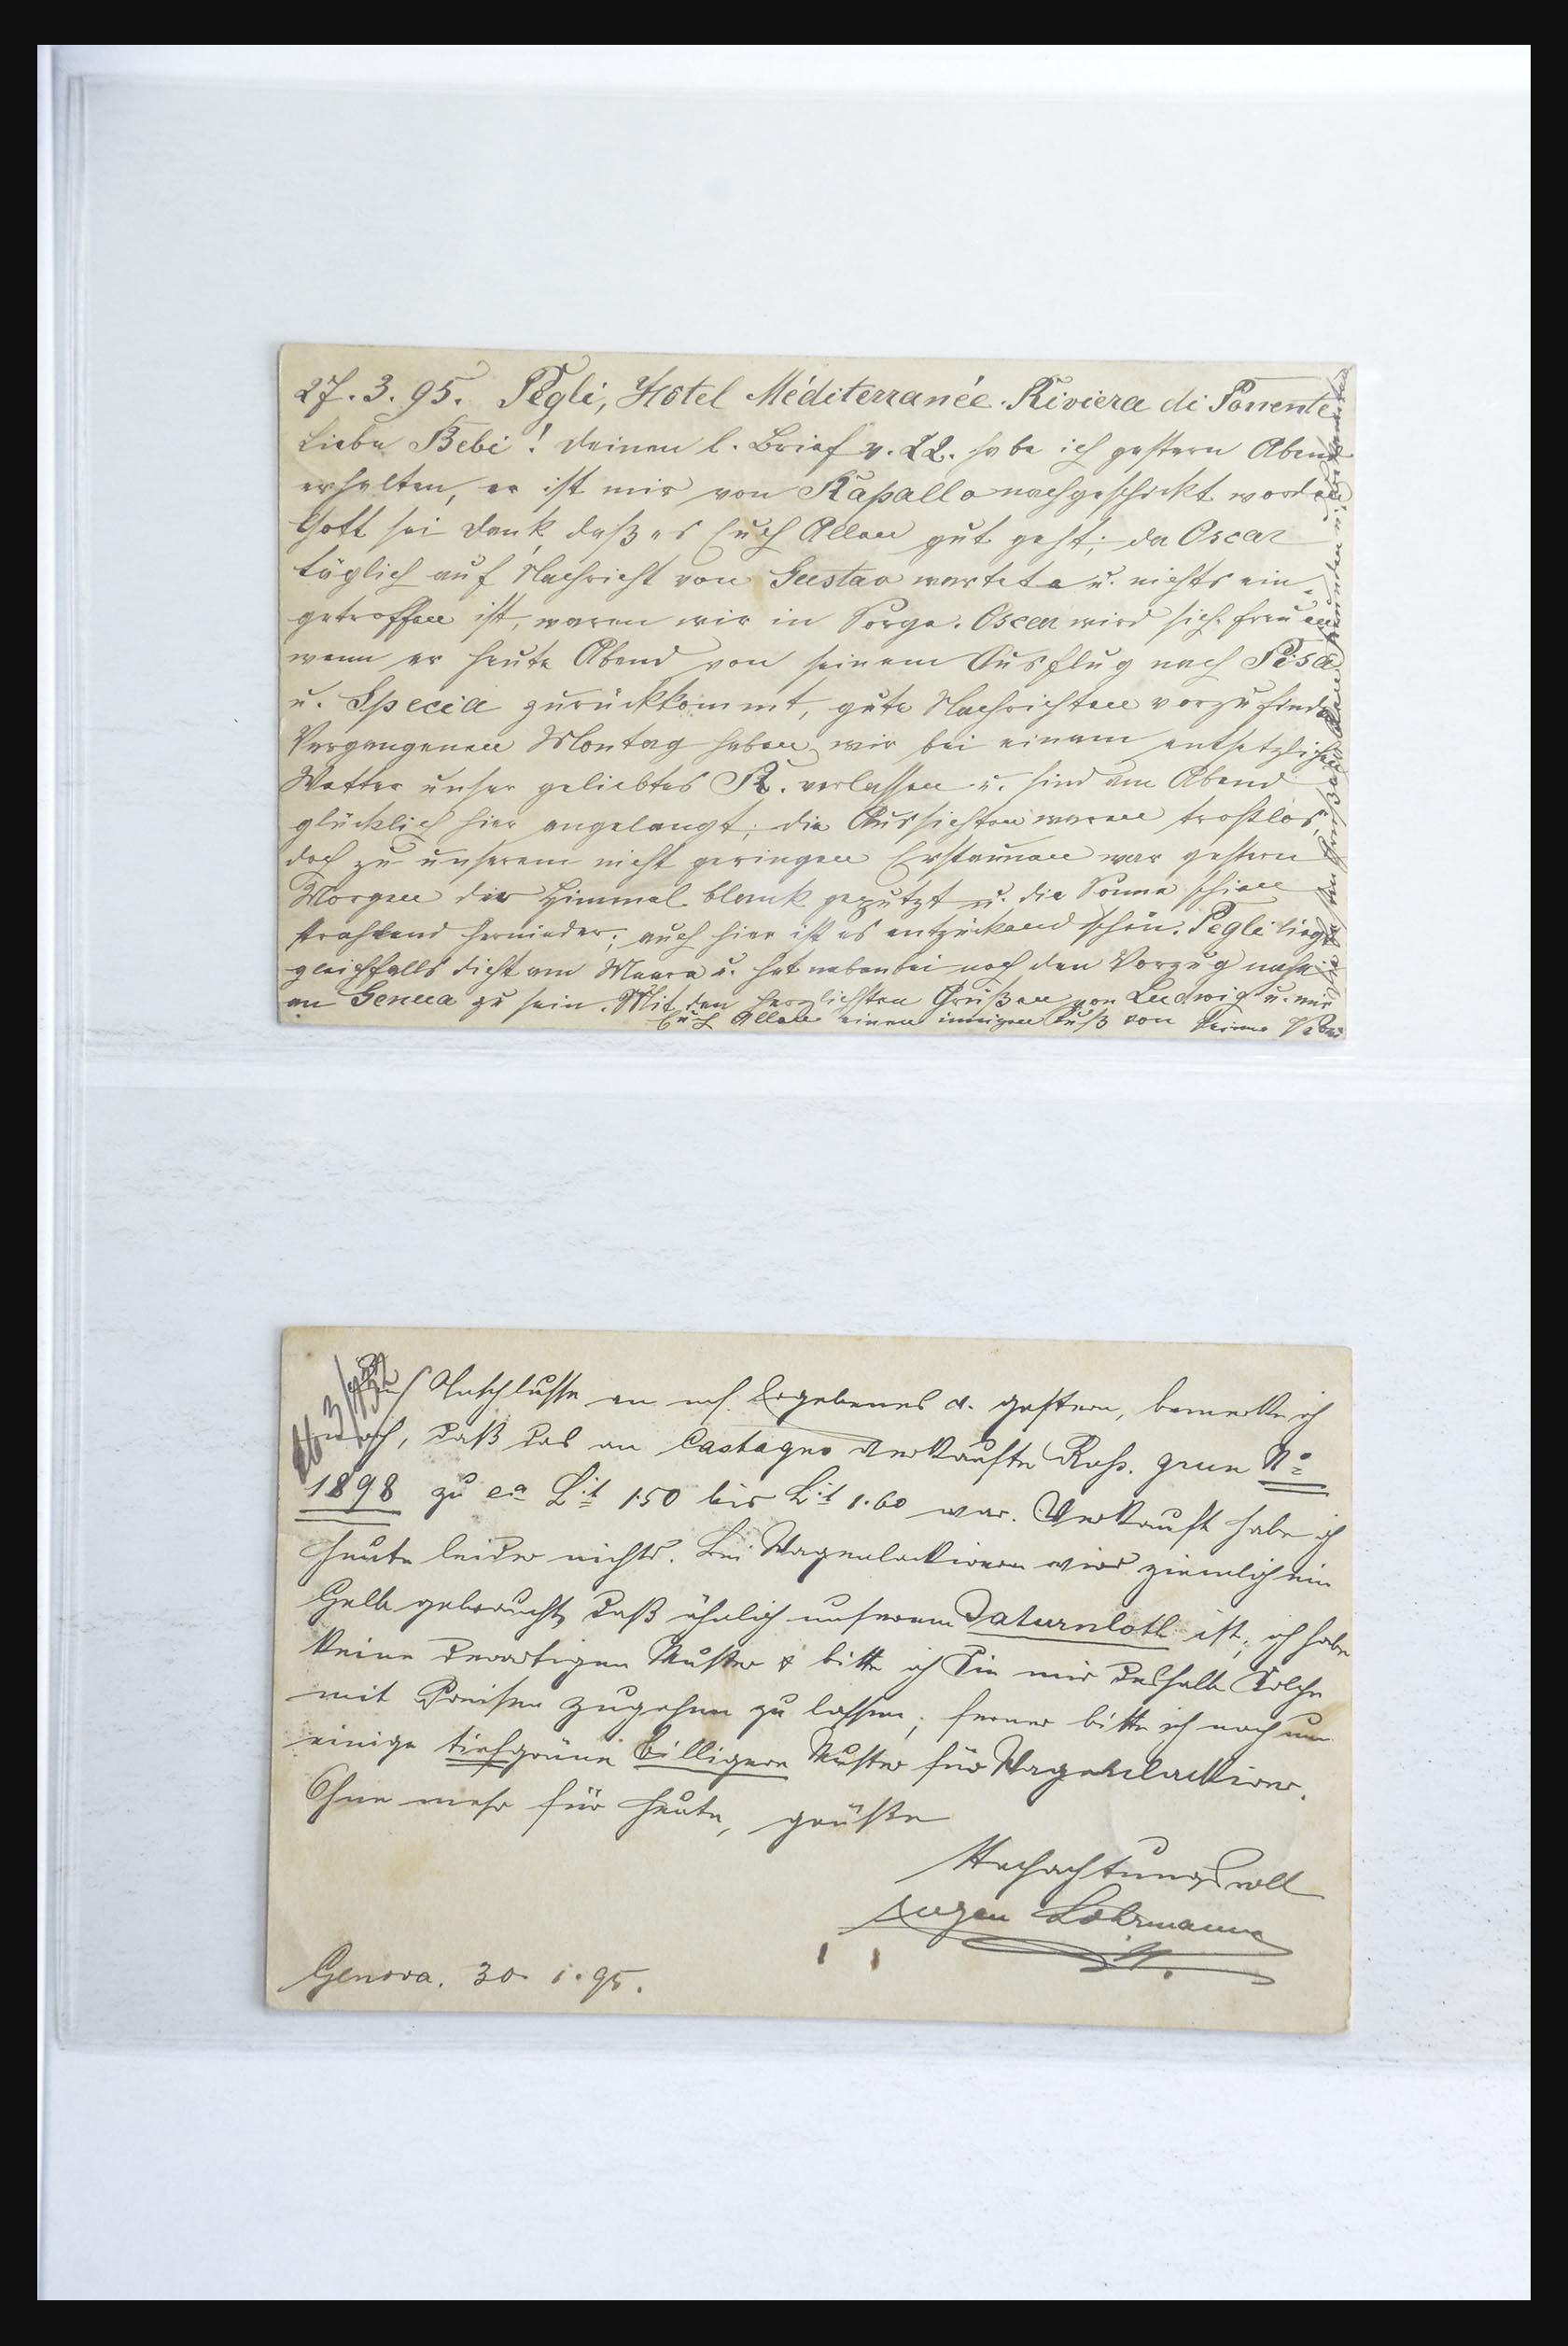 27.3.95. Pegli, Hôtel Méditerranée. Riviera di Ponente
Liebe Bebi! Deinen l. Brief v. 22. habe ich gestern Abend
erhalten, er ist mir von Rapallo nachgeschickt worden
Gott sei Dank, daß es Euch Allen gut geht; da Oscar
täglich auf Nachricht von Gustav wartete u. nichts ein-
getroffen ist, waren wir in Sorge. Oscar wird sich freuen
wenn er heute Abend von seinem Ausflug nach Pisa
u. Specia zurückkommt, gute Nachrichten vorzufinden
Vergangenen Montag haben wir bei einem entsetzlichen
Wetter unser geliebtes R. verlassen u. sind am Abend
glücklich hier angelangt; die Aussichten waren trostlos,
doch zu unserem nicht geringen Erstaunen war gestern
Morgen der Himmel blank geputzt u. die Sonne schien
strahlend hernieder; auch hier ist es entzückend schön. Pegli liegt
gleichfalls dicht am Meere u. hat nebenbei noch den Vorzug nahe
an Genua zu sein. Mit den herzlichsten Grüßen von Ludwig u. mir
Euch Allen einen innigen Kuß von Deiner
Anschlusse an mf. Ergebenes v. gestern, bemerke ich
noch, daß das an Castagno verkaufte Russ. grun No
1898 zu ca Lit 1.50 bis Lit 1.60 war. Verkauft habe ich
heute leider nichts. Bei Wagenlackirern wird ziemlich ein
Gelb gebraucht, daß ähnlich unserem Saturnloth ist; ich habe
keine derartigen Muster & bitte ich Sie mir deshalb solche
mit Preisen zugehen zu lassen; ferner bitte ich noch um
einige tiefgrüne billigere Muster für Wagenlackirer.
Ohne mehr für heute, grüße
Hochachtungsvoll
Eugen Lohrmann
Genova. 30. 1. 95.